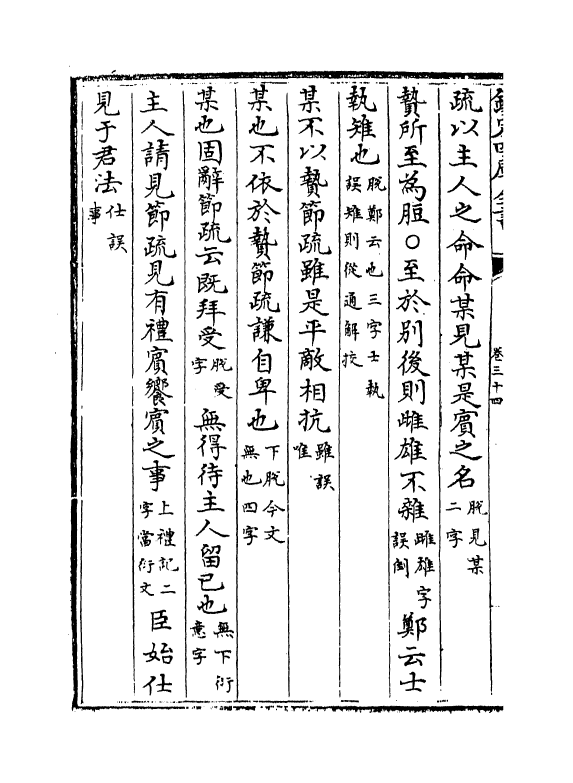 欽定四庫全書
卷三十四
疏以主人之命命某見某是賓之名脱見某二字
贄所至為脰○至於別後則雌雄不雜雌雄字誤倒鄭云士
執雉也脱鄭云也三字士執誤雉則從通解挍
某不以贄節疏雖是平敵相抗雖誤唯
某也不依於贄節疏謙自卑也下脱今文無也四字
某也固辭節疏云既拜受脱受字無得待主人留已也無下衍意字
主人請見節疏見有禮賓饗賓之事上禮記二字當衍文臣始仕
見于君法仕誤事